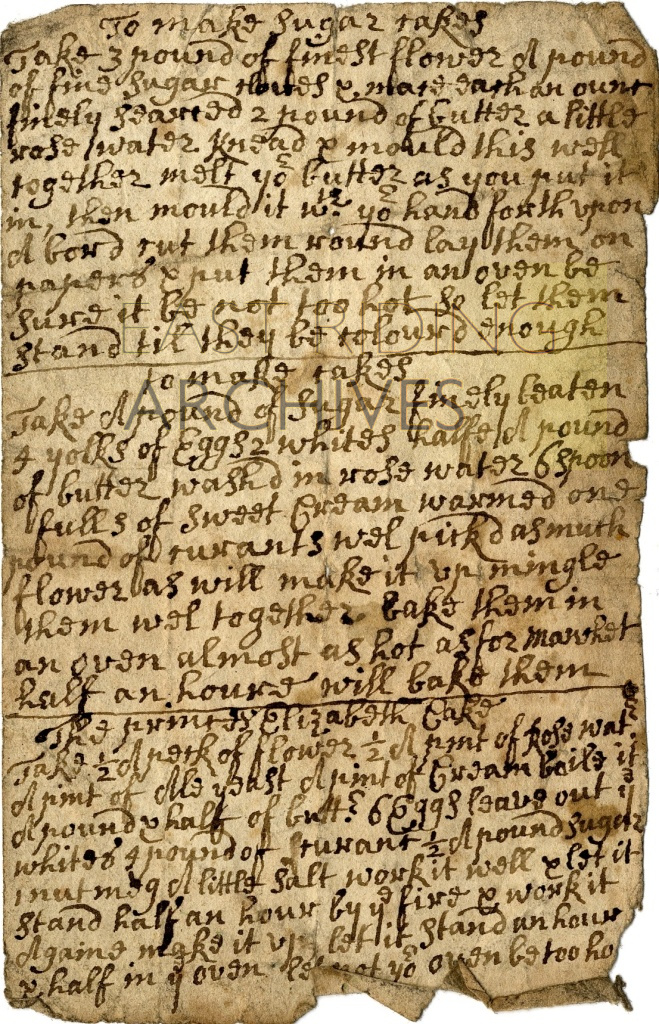 To make sugar cakes
Take 3 pound of finest flower A pound
of fine sugar cloves & mace each an ounc
finely searced 2 pound of butter a little
rose water knead & mould this well
together melt yor butter as you put it
in, then mould it wth yor hand forth vpon
A bord cut them round lay them on
papers & put them in an oven be
sure it be not too hot so let them
stand til they be colourd enough
to make cakes
Take A pound of sugar finely beaten
4 yolks of Eggs 2 whites halfe A pound
of butter washd in rose water 6 spoon
fulls of sweet Cream warmed one
pound of currants wel pickd as much
flower as will make it vp mingle
them wel together bake them in
an oven almost as hot as for manchet
half an houre will bake them
The princes Elizabeth Cake
Take ½ A peck of flower ½ A pint of Rose watr
A pint of Ale yeast A pint of Cream boile it
A pound & half of buttr 6 Eggs leave out ye
whites 4 pound of Currant ½ A pound sugar
1 nutmeg A little salt work it well & let it
stand half an hour by ye fire & work it
Againe make it vp let it stand an hour
& half in ye oven let not yor oven be too ho
EAST RIDING
ARCHIVES